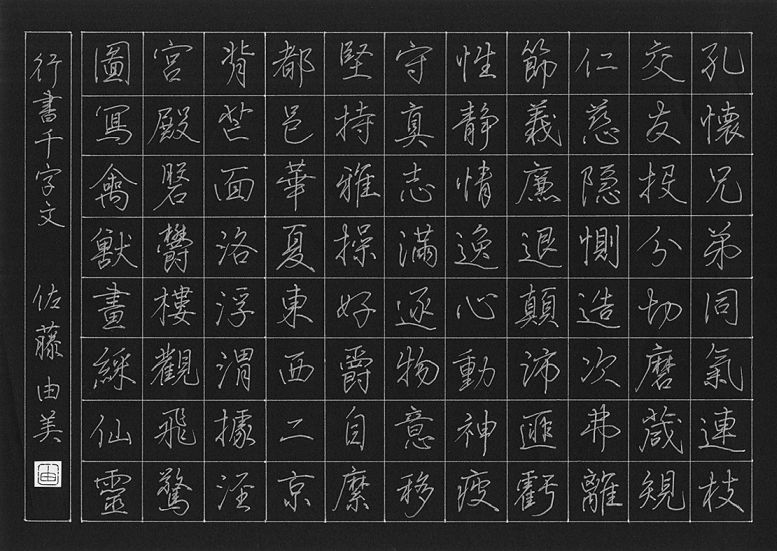 孔懐兄弟同氣連枝
交友投分切磨箴規
仁慈隠惻造次弗離
節義廉退顛沛匪虧
性静情逸心動神疲
守真志満逐物意移
堅持雅操好爵自縻
都邑華夏東西二京
背芒面洛浮渭據涇
宮殿磐鬱樓觀飛驚
圖寫禽獸畫綵仙靈
行書千字文 佐藤由美
由